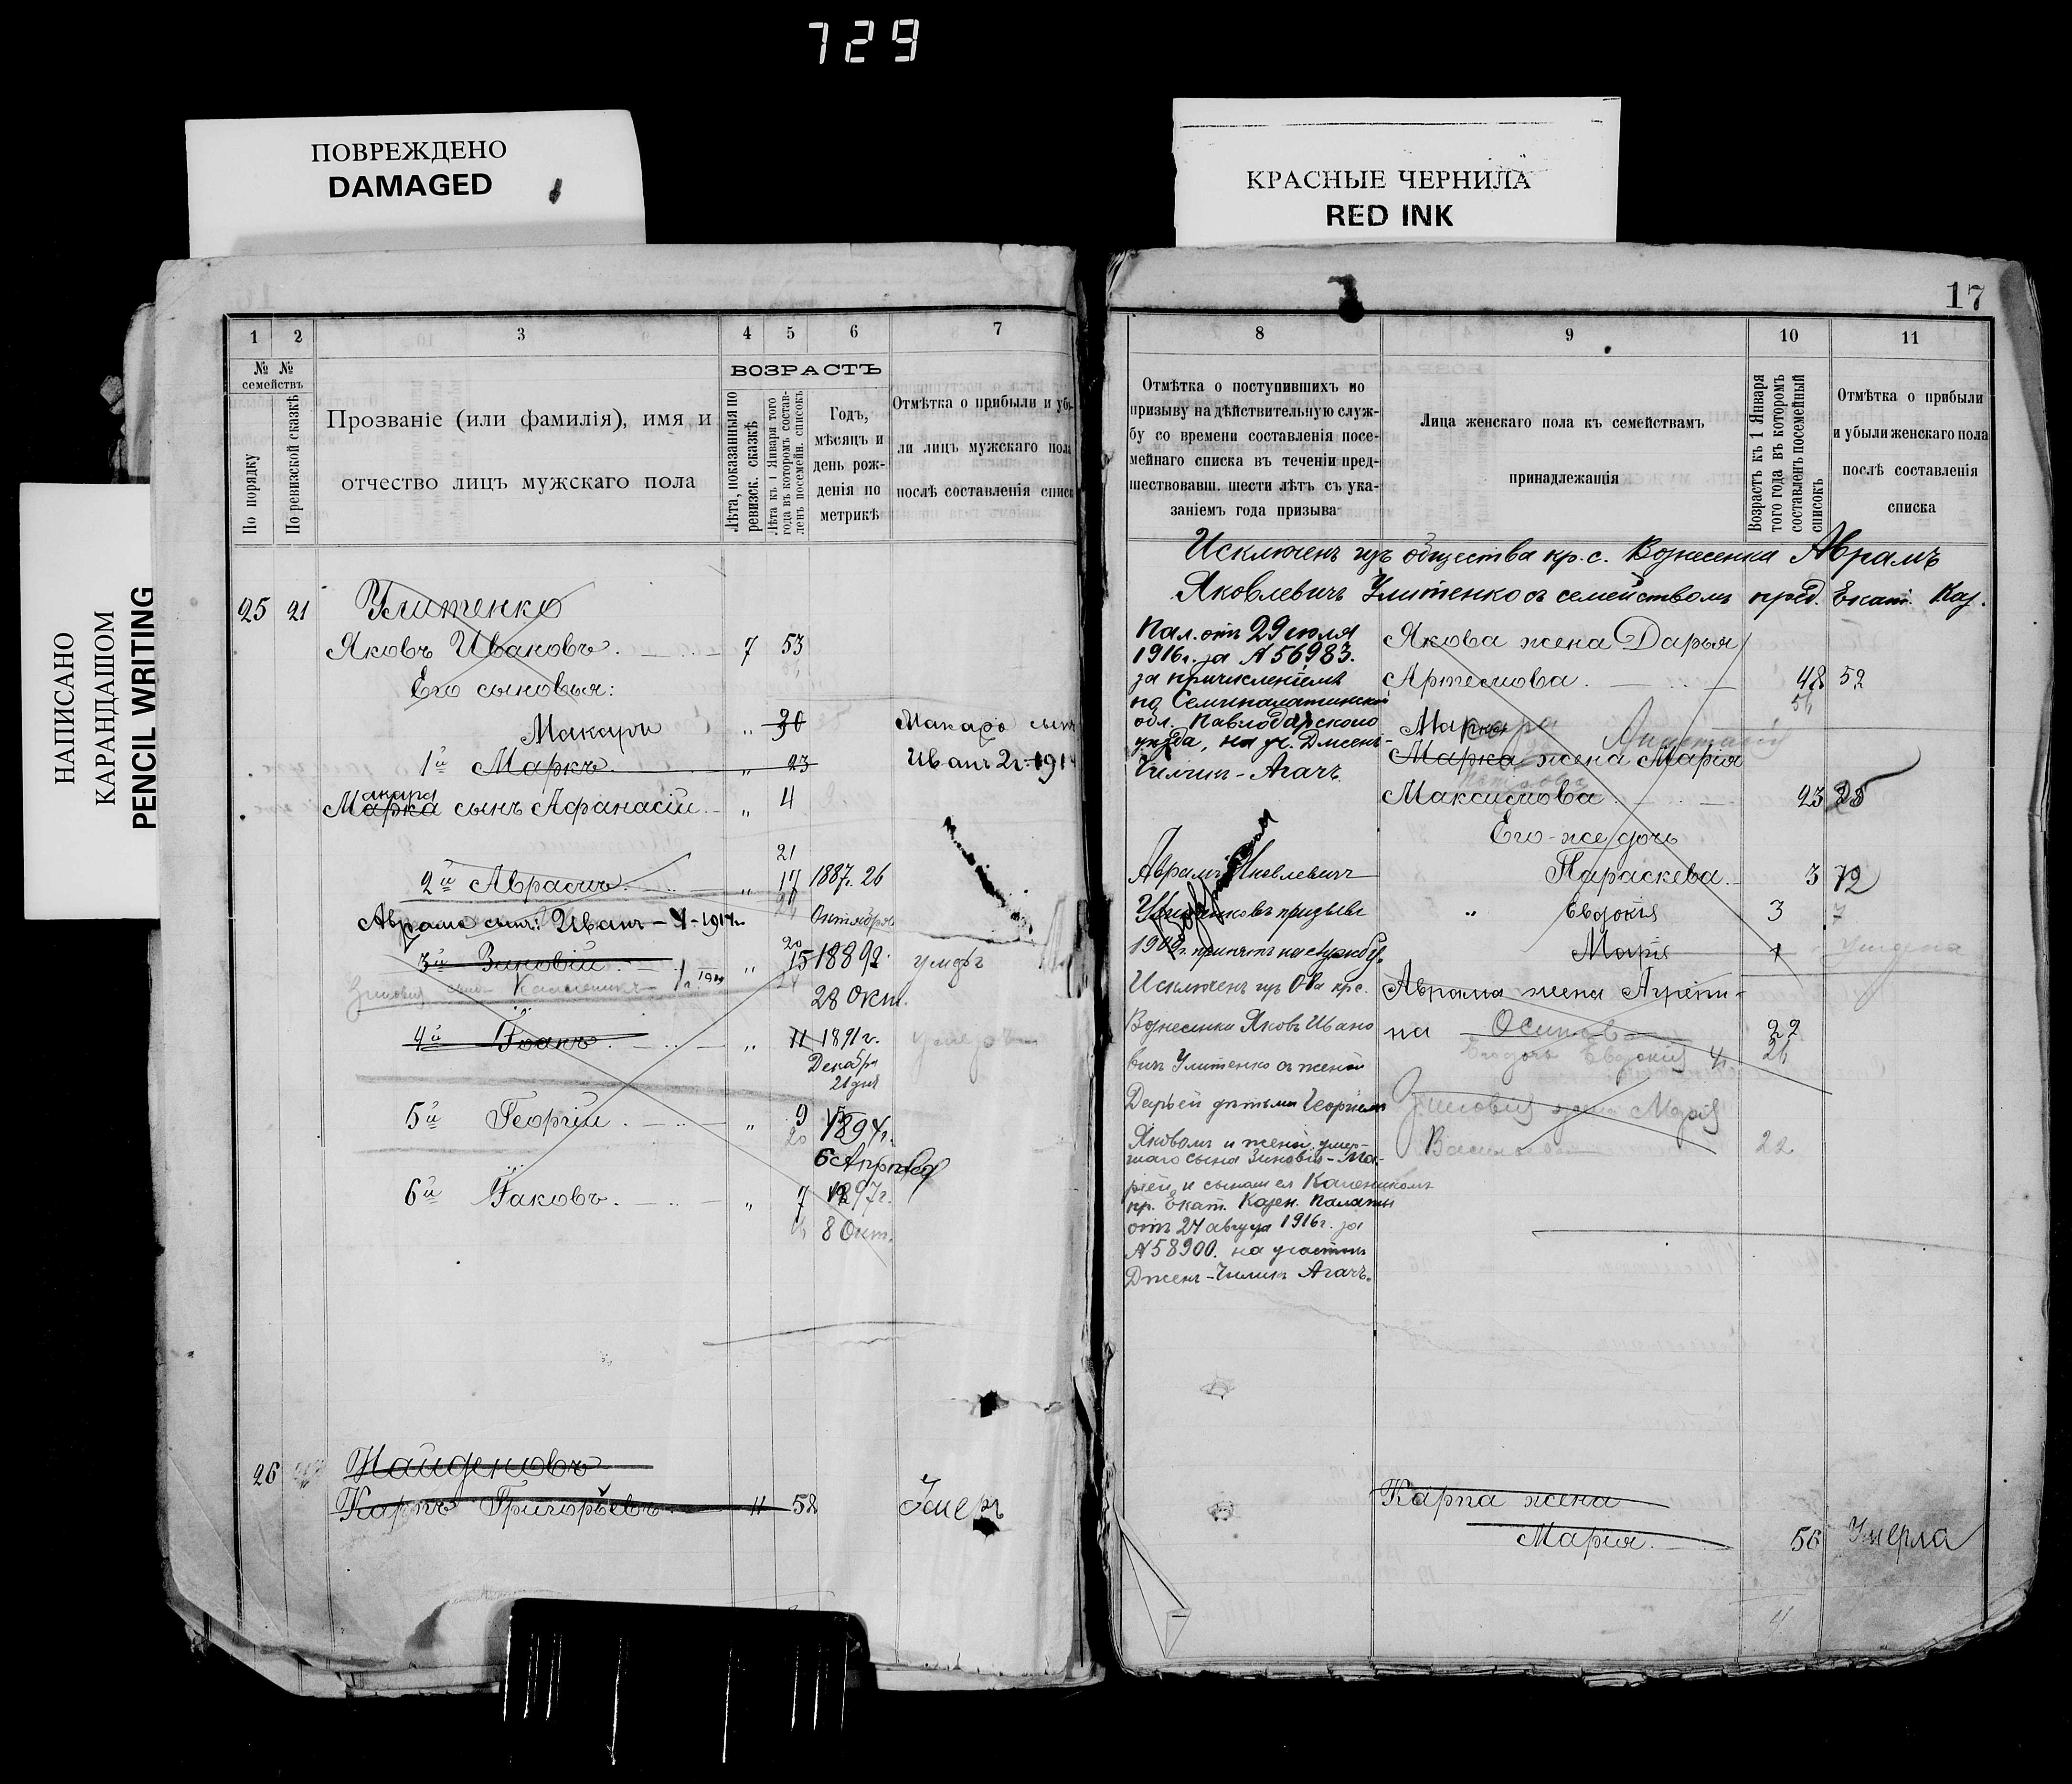 729
ПОВРЕЖДЕНО
DAMAGED
КРАСНЫЕ ЧЕРНИЛА
RED INK
НАПИСАНО
КАРАНДАШОМ
PENCIL WRITING
1 2 3 4 5 6 7
№ №
семействъ
По порядку
По ревизской сказкѣ
Прозваніе (или фамилія), имя и
отчество лицъ мужскаго пола
ВОЗРАСТЪ
Лѣта, показанныя по
ревизск. сказкѣ
Лѣта къ 1 Января того
года въ которомъ состав-
ленъ посемейн. списокъ
Годъ,
мѣсяцъ и
день рож-
денія по
метрикѣ
Отмѣтка о прибыли и убы-
ли лицъ мужскаго пола
послѣ составленія списка
25 21 Улитенко
Яковъ Ивановъ. 7 53
Его сыновья:
Макаръ " 30 Макара сынъ
1й Маркъ " 23 Иванъ 2г. 191
Марка акара сынъ Афанасій " 4
21
2й Аврамъ. " 17 1887. 26
Октября
Аврама сынъ: Иванъ - 1914г.
20
3й Зиновій " 15 1889г. умеръ
28 Окт.
Зиновія сынъ Каленикъ
4й Іоанъ. " 11 1891г. умеръ
Декабря
21 дня
5й Георгій. " 9 1894г.
20
6 Апрѣля
6й Іаковъ. " 7 1897г.
8 Окт.
26 Найденовъ
Карпъ Григорьевъ 11 58 Умеръ
17
8 9 10 11
Отмѣтка о поступившихъ по
призыву на дѣйствительную служ-
бу со времени составленія посе-
мейнаго списка въ теченіи пред-
шествовавш. шести лѣтъ съ ука-
заніемъ года призыва
Лица женскаго пола къ семействамъ
принадлежащія
Возрастъ къ 1 Января
того года въ которомъ
составленъ посемейный
списокъ
Отмѣтка о прибыли
и убыли женскаго пола
послѣ составленія
списка
Исключенъ изъ общества кр. с. Вознесенка Аврамъ
Яковлевичъ Улитенко съ семействомъ пред. Екат. Каз.
Пал. отъ 29 іюля
1916г. за № 56983.
за причисленіемъ
на Семипалатинской
обл. Павлодарскаго
уѣзда, на уч. Джень-
Чиликъ-Агачъ.
Якова жена Дарья
Артемова. 48 52
Макара
Марка жена Марія
Максимова. 23 25
Его-же дочь
Параскева. 3 12
" Евдокія 3 7
Марія 1 умерла
Аврамъ Яковлевичъ
призыва
1909г. принятъ на службу.
Исключенъ изъ О-ва кр. с.
Вознесенки Яковъ Ивано
вичъ Улитенко съ женой
Дарьей дѣтьми Георгіемъ
Яковомъ и женой умер-
шаго сына Зиновія - Ма-
ріей и сыномъ ея Каленикомъ
пр. Екат. Казен. Палаты
отъ 24 августа 1916г. за
№ 58900. на участокъ
Джень-Чиликъ Агачъ.
Аврама жена Агрепи-
на Осипова 22
26
Его дочь Евдокія
Зиновія жена Марія
Васильева 22
Карпа жена
Марія. 56 Умерла